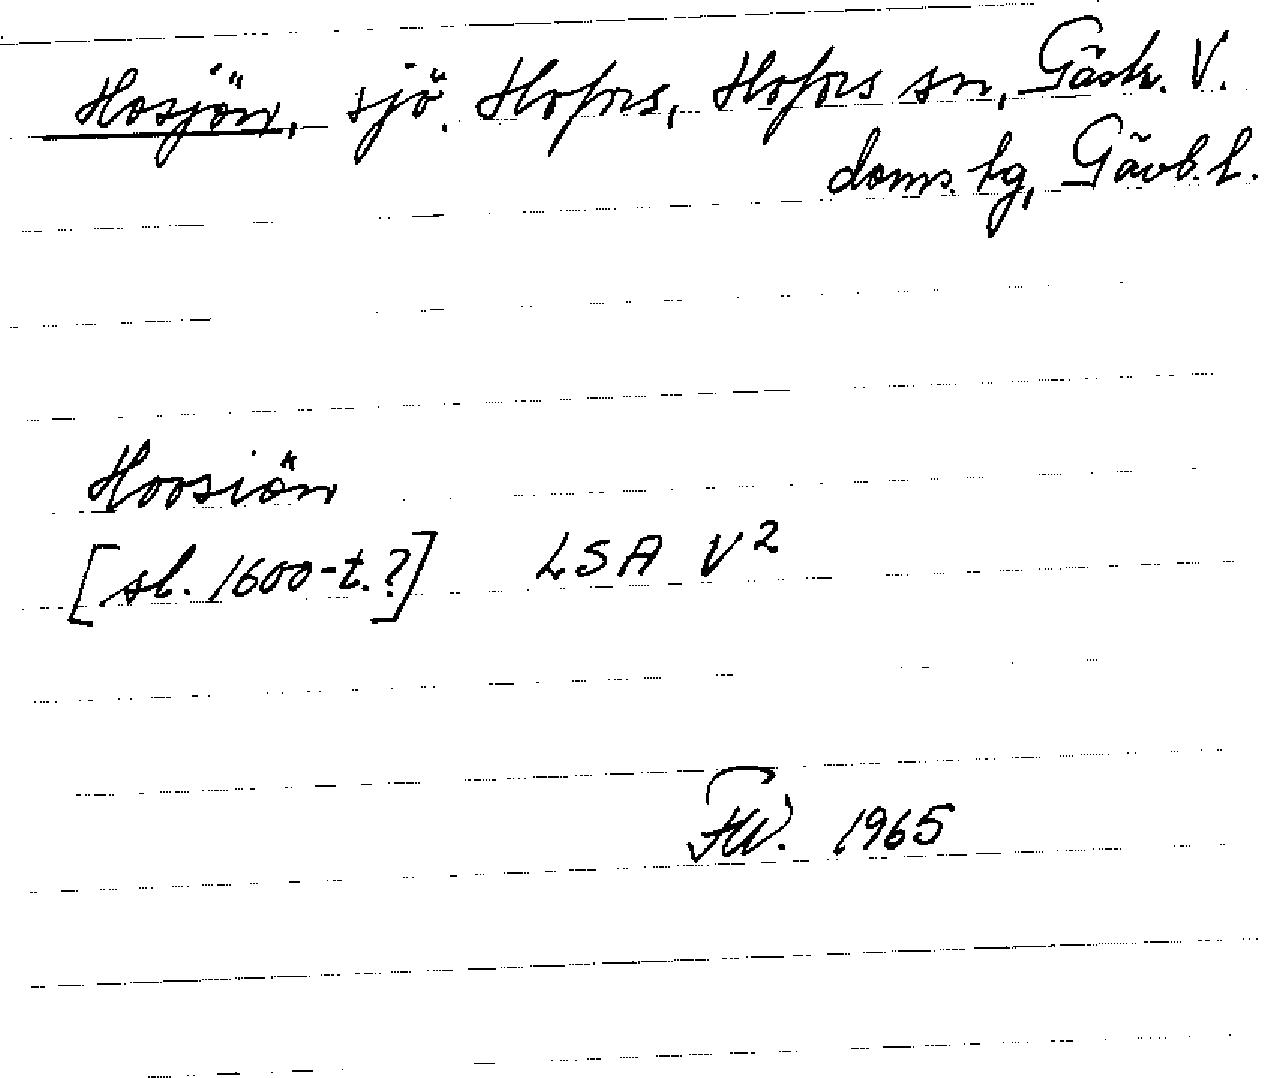 Hosjön, sjö. Hofors, Hofors sn, Gästr. V.
doms. tg, Gävb. l.
Hoosiön
[sl. 1600-t.?] LSA V²
FW. 1965